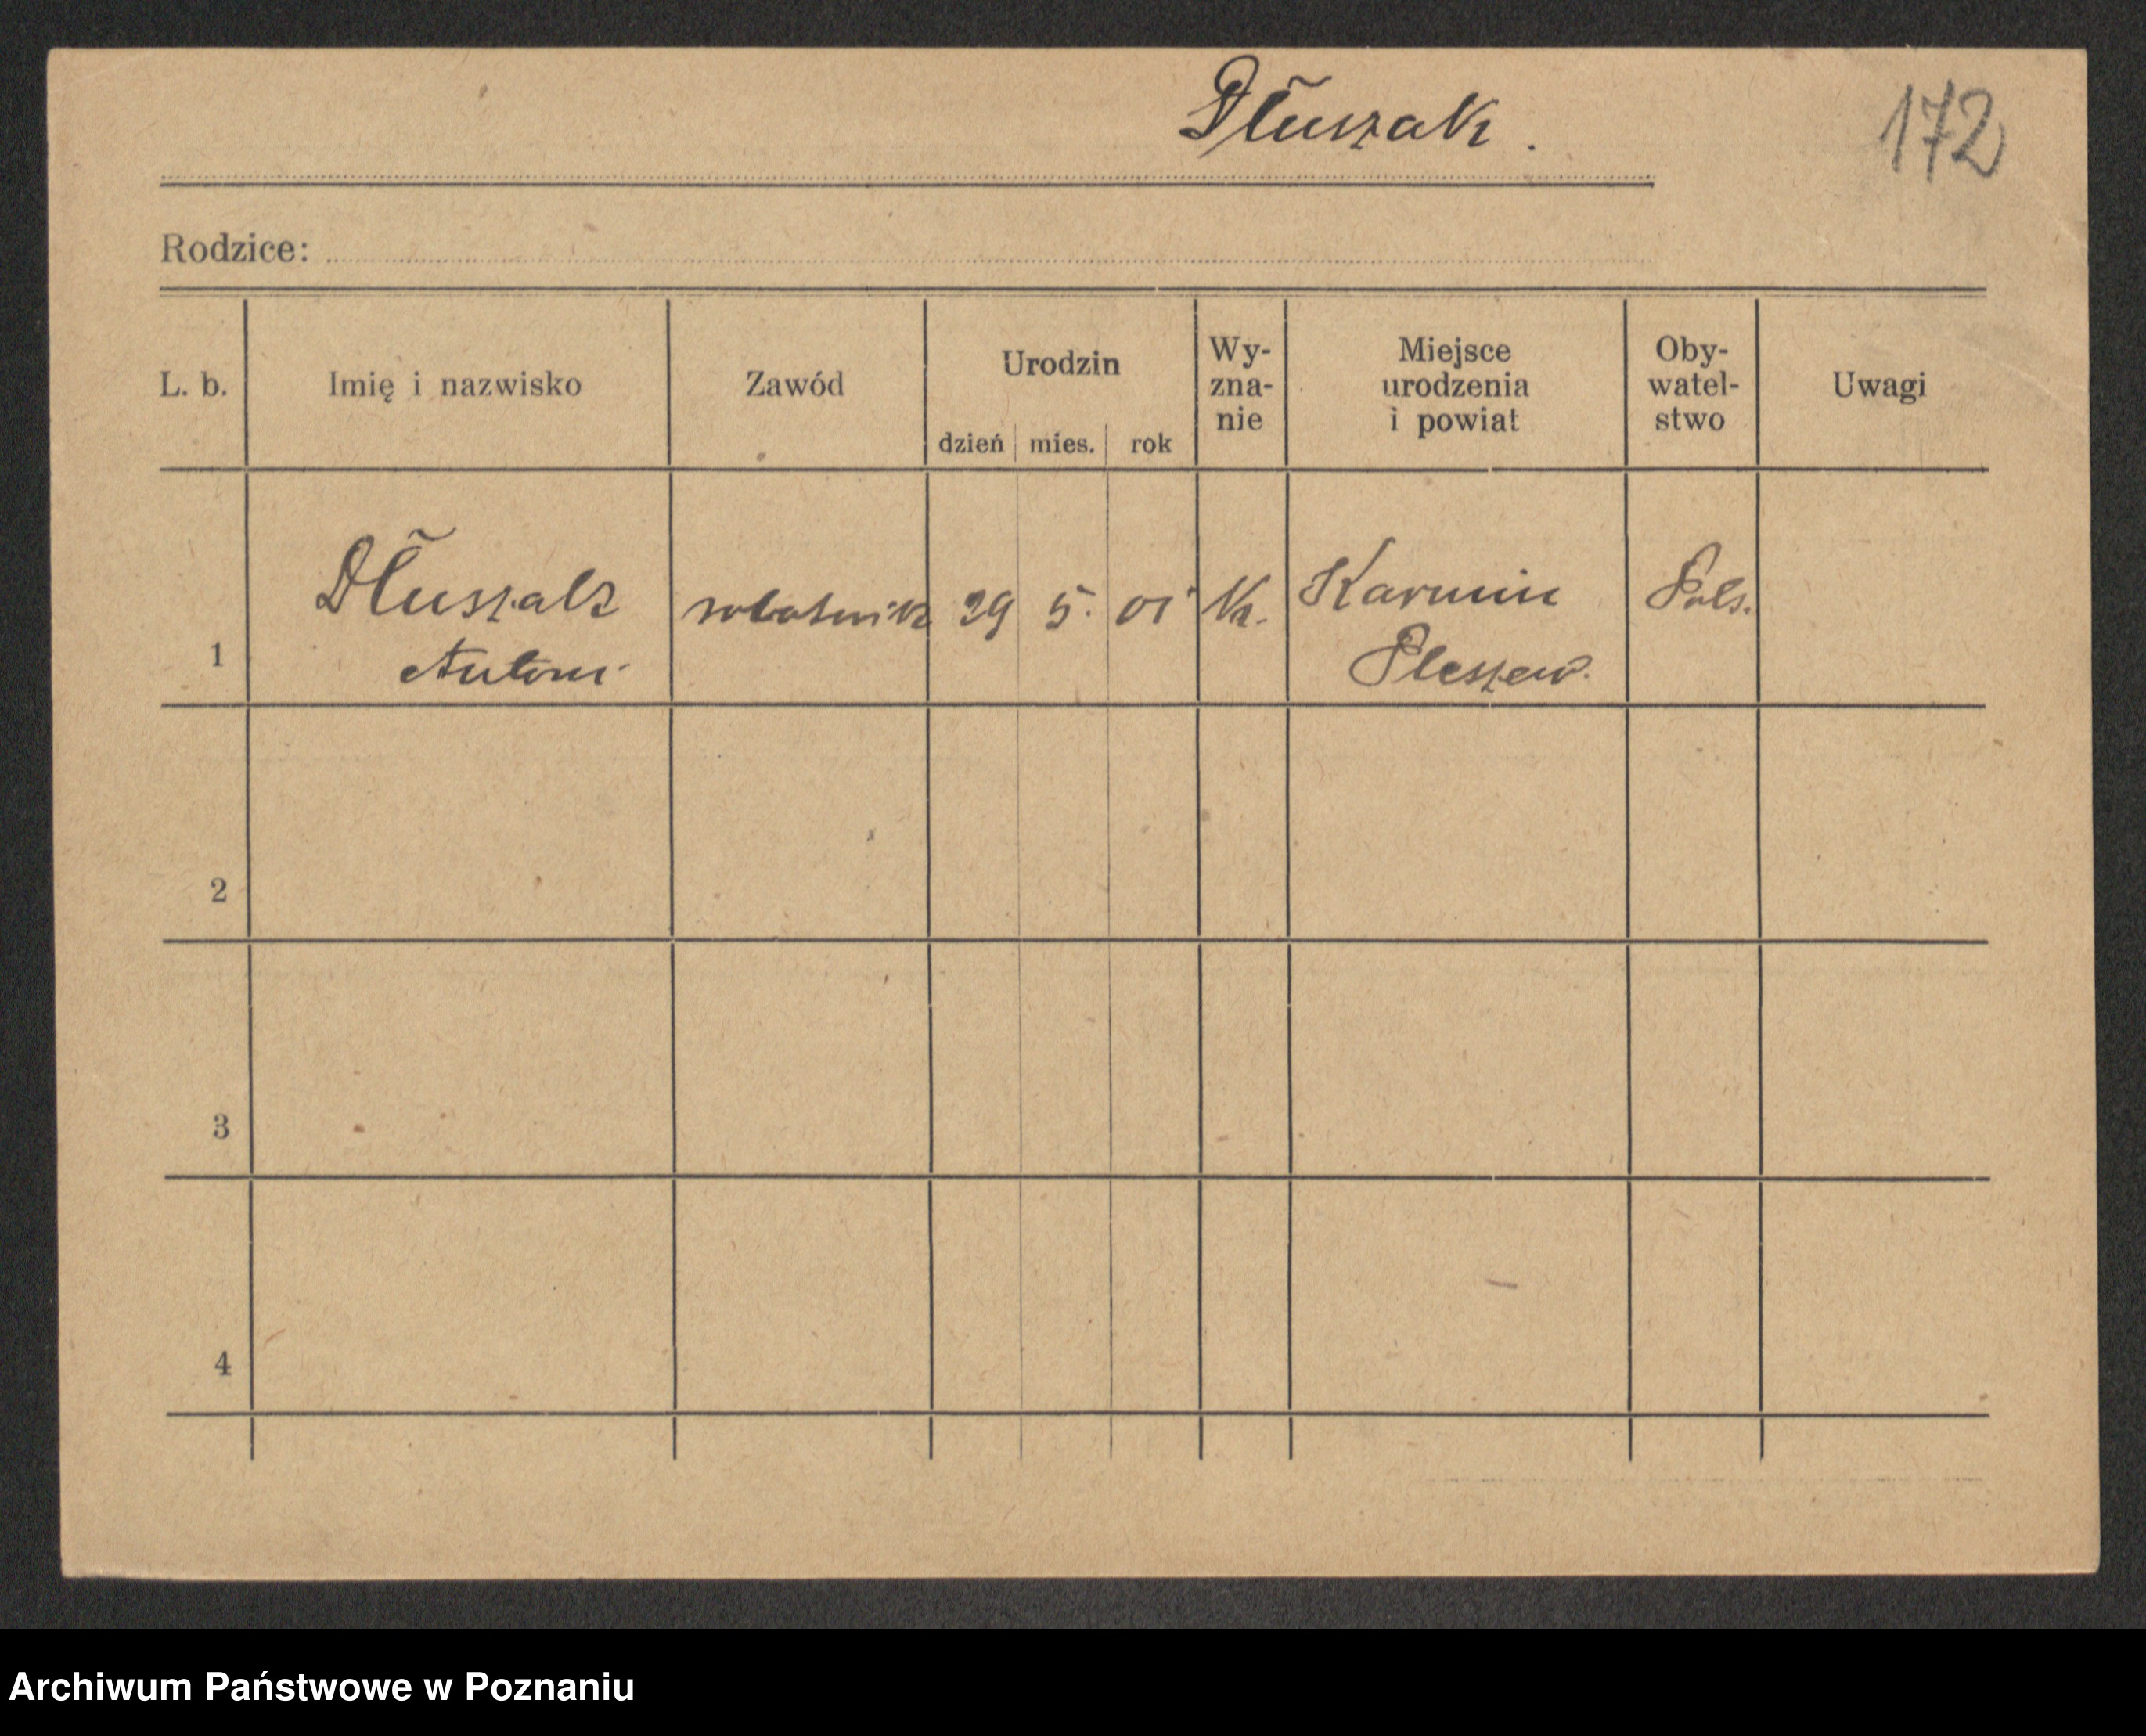 Dłuszak.
172
Rodzice:
L. b.
Imię i nazwisko
Zawód
Urodzin
dzień mies. rok
Wy-
zna-
nie
Miejsce
urodzenia
i powiat
Oby-
watel-
stwo
Uwagi
1
Dłuszak
Antoni
robotnik
29 5. 01
K.
Karmin
Pleszew.
Pols.
2
3
4
Archiwum Państwowe w Poznaniu